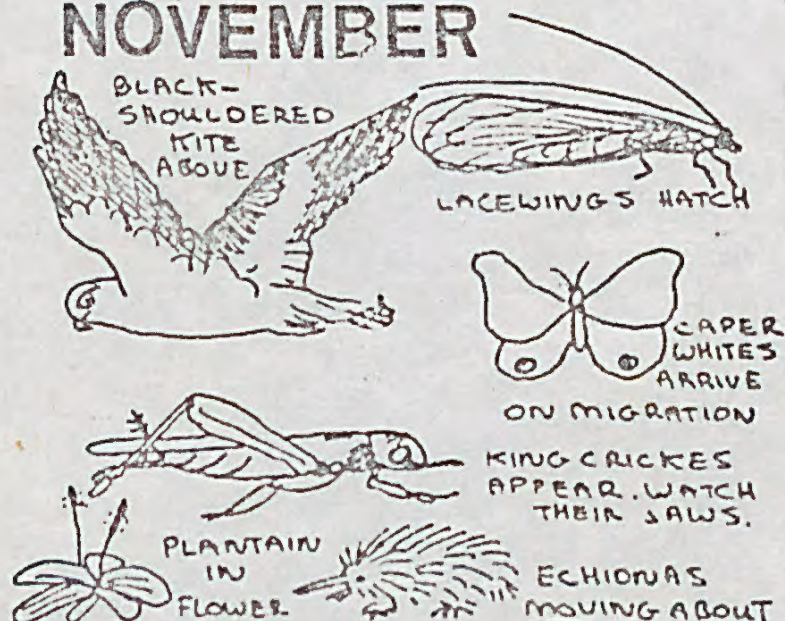 NOVEMBER
BLACK-
SHOULDERED
KITE
ABOVE
LACEWINGS HATCH
CAPER
WHITES
ARRIVE
ON MIGRATION
KING CRICKES
APPEAR. WATCH
THEIR JAWS.
PLANTAIN
IN
FLOWER
ECHIONAS
MOVING ABOUT